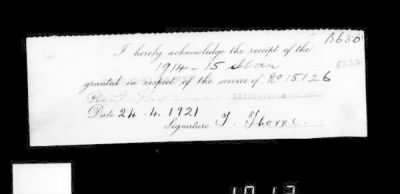 B680
I hereby acknowledge the receipt of the
1914-15 Star
granted in respect of the service of No 15126
Date 24.4.1921
Signature T. Thorpe